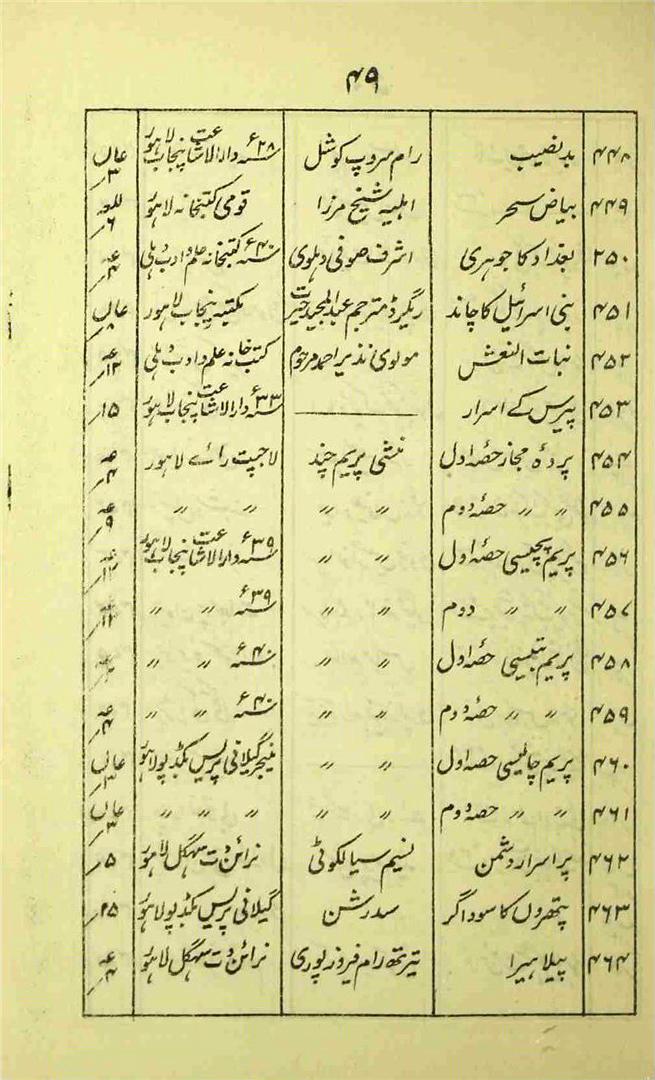 ۴۹
۴۴۸ بدنصیب رام سروپ کوشل ۲۸ء دارالاشاعت پنجاب لاہور ۳/
۴۴۹ بیاض سحر اہلیہ شیخ مرزا قومی کتبخانہ لاہور ۶/
۲۵۰ بغداد کا جوہری اشرف صوفی دہلوی ۴۰ء کتبخانہ علم و ادب دہلی ۴/
۴۵۱ بنی اسرائیل کا چاند رگیرڈ مترجم عبدالمجید حیرت مکتبہ پنجاب لاہور
۴۵۲ نبات النعش مولوی نذیر احمد مرحوم کتب خانہ علم و ادب دہلی ۱۲/
۴۵۳ پیرس کے اسرار ——— ۳۳ء دارالاشاعت پنجاب لاہور ۱۵/
۴۵۴ پردۂ مجاز حصہ اول منشی پریم چند لاجپت رائے لاہور ۴/
۴۵۵ 〃 〃 حصۂ دوم 〃 〃 〃 〃 ۹/
۴۵۶ پریم پچیسی حصۂ اول 〃 〃 ۳۹ء دارالاشاعت پنجاب لاہور ۱۲/
۴۵۷ 〃 〃 دوم 〃 〃 ۳۹ء 〃 〃 ۱۲/
۴۵۸ پریم بتیسی حصۂ اول 〃 〃 ۴۰ء 〃 〃
۴۵۹ 〃 〃 حصۂ دوم 〃 〃 ۴۰ء 〃 〃 ۴/
۴۶۰ پریم چالیسی حصہ اول 〃 〃 منیجر گیلانی پریس بکڈپو لاہور ۳/
۴۶۱ 〃 〃 حصہ دوم 〃 〃 〃 〃 〃 ۳/
۴۶۲ پراسرار دشمن نسیم سیالکوٹی نرائن دت سہگل لاہور ۵/
۴۶۳ پتھروں کا سوداگر سدرشن گیلانی پریس بکڈپو لاہور
۴۶۴ پیلا ہیرا تیرتھ رام فیروزپوری نرائن دت سہگل لاہور ۴/